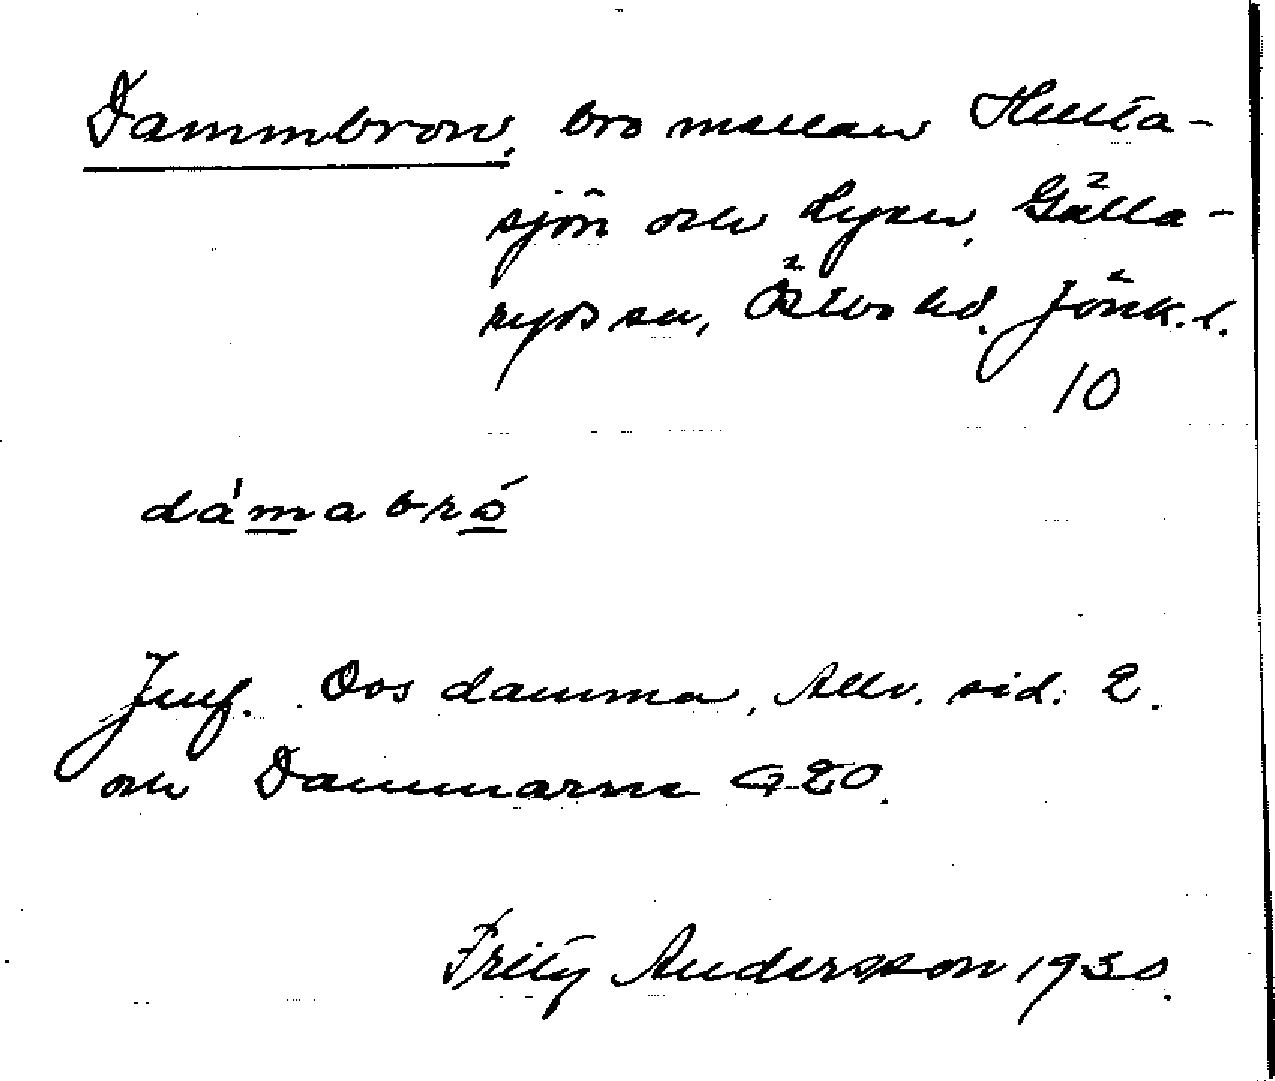 Dammbron, bro mellan Hulta-
sjön och Lyen, Gälla-
ryds sn, Östbo hd. Jönk. l.
10
dámabró
Jmf. Oos damma, Allv. sid. 2.
och Dammarna G 20.
Fritz Andersson 1930.